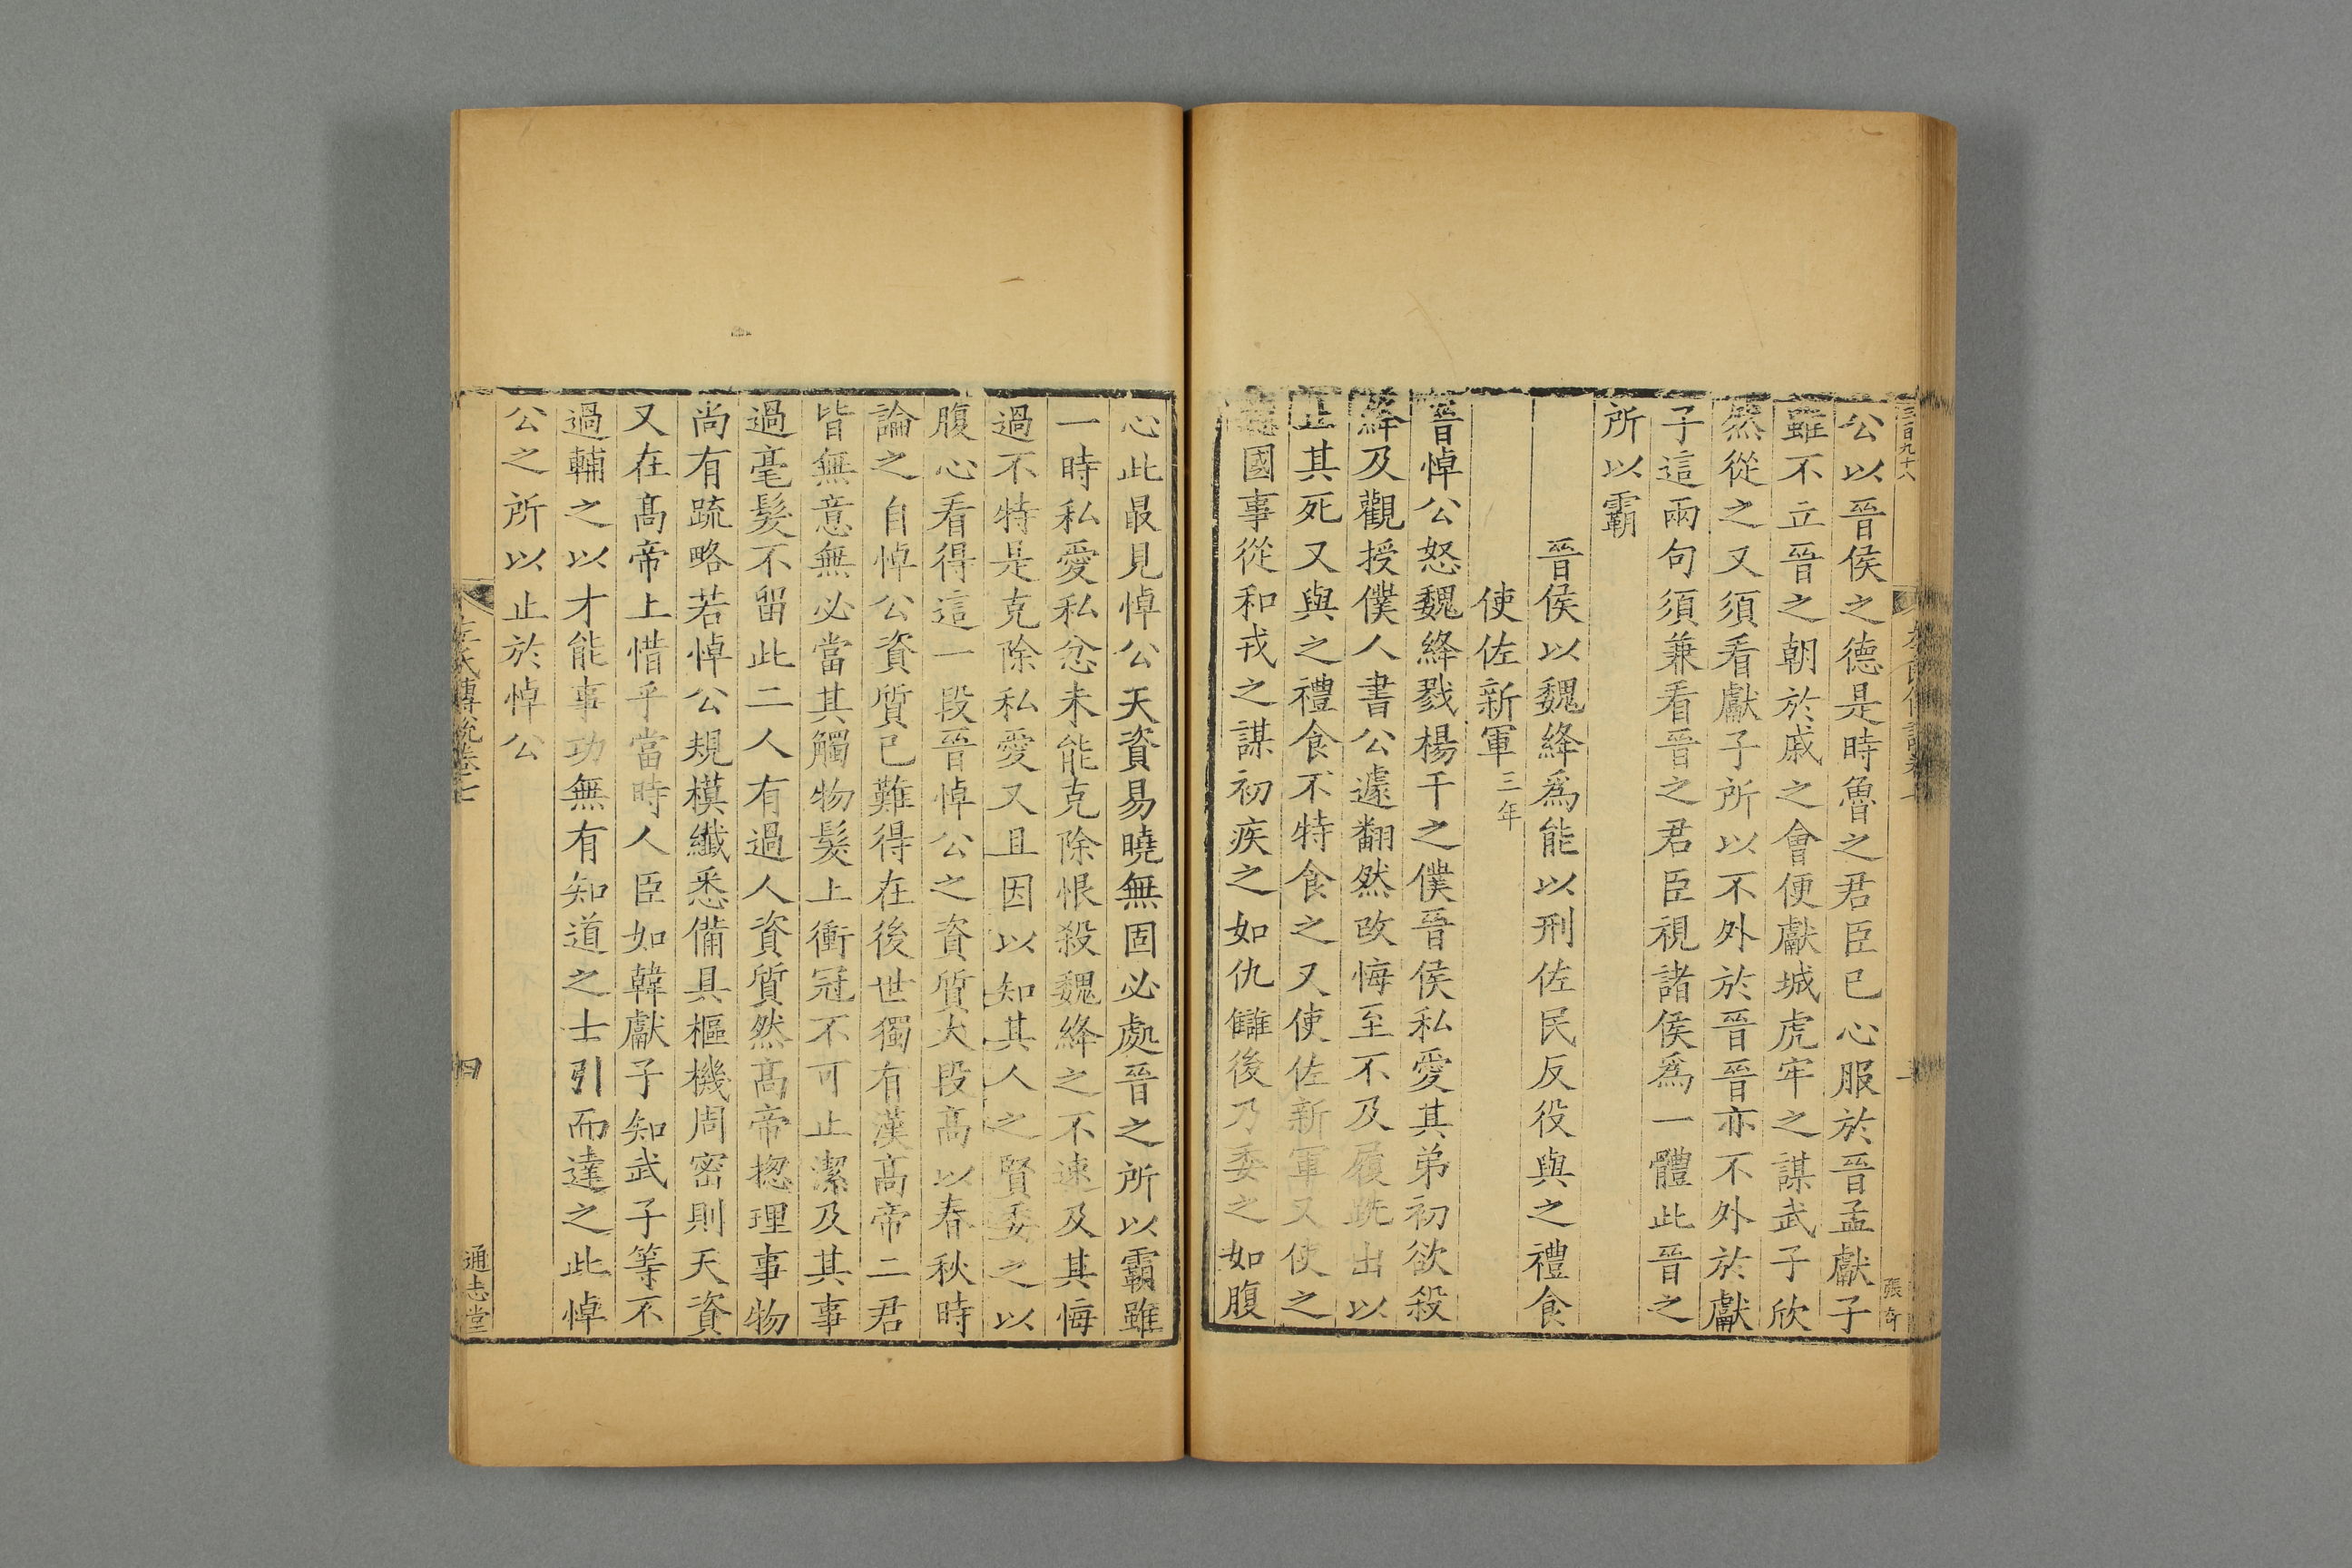 三百九十八
張奇
公以晉侯之德是時魯之君臣已心服於晉孟獻子
雖不立晉之朝於戚之會便獻城虎牢之謀武子欣
然從之又須看獻子所以不外於晉晉亦不外於獻
子這兩句須兼看晉之君臣視諸侯爲一體此晉之
所以霸
晉侯以魏絳爲能以刑佐民反役與之禮食
使佐新軍三年
晉悼公怒魏絳戮楊干之僕晉侯私愛其弟初欲殺
絳及觀授僕人書公遽翻然改悔至不及履跣出以
止其死又與之禮食不特食之又使佐新軍又使之
國事從和戎之謀初疾之如仇讎後乃委之如腹
心此最見悼公天資易曉無固必處晉之所以霸雖
一時私愛私忿未能克除恨殺魏絳之不速及其悔
過不特是克除私愛又且因以知其人之賢委之以
腹心看得這一段晉悼公之資質大段高以春秋時
論之自悼公資質已難得在後世獨有漢高帝二君
皆無意無必當其觸物髮上衝冠不可止潔及其事
過毫髮不留此二人有過人資質然高帝揔理事物
尚有䟽略若悼公規模纖悉備具樞機周密則天資
又在高帝上惜乎當時人臣如韓獻子知武子等不
過輔之以才能事功無有知道之士引而達之此悼
公之所以止於悼公
左氏傳說卷七
四
通志堂